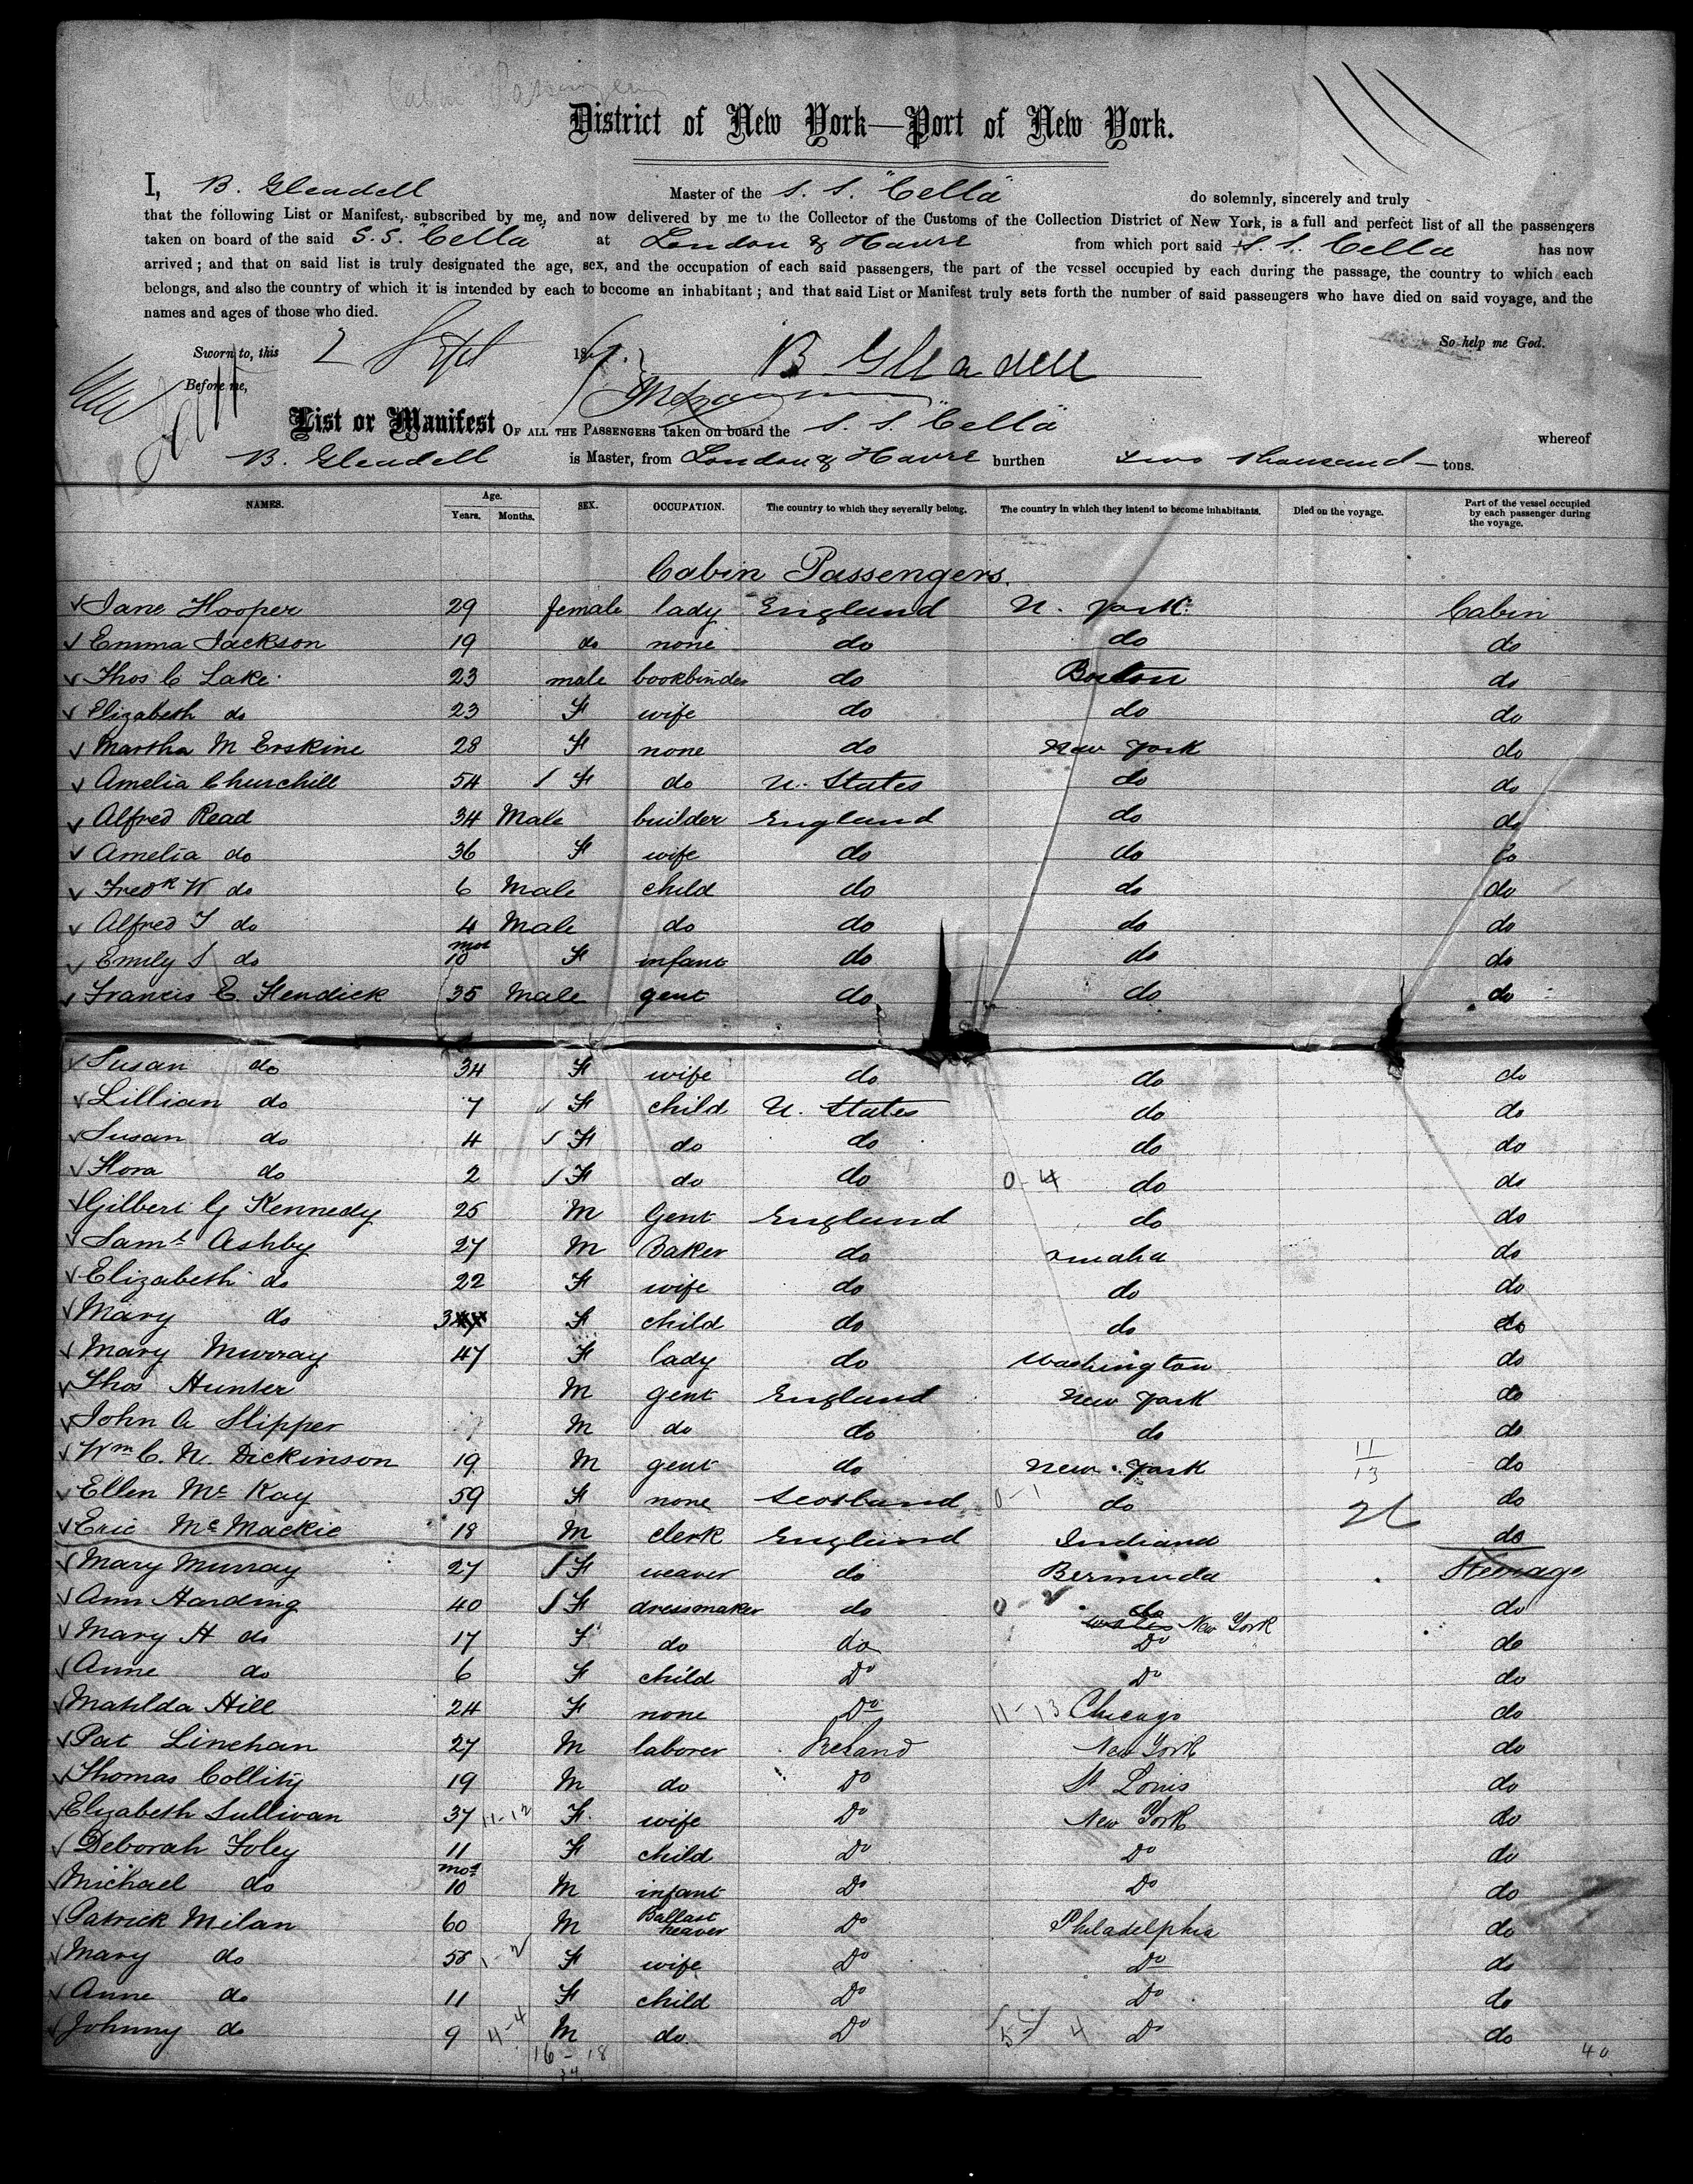 Cabin Passengers
District of New York—Port of New York.
I, B. Gleadell Master of the S. S. "Cella" do solemnly, sincerely and truly
that the following List or Manifest, subscribed by me, and now delivered by me to the Collector of the Customs of the Collection District of New York, is a full and perfect list of all the passengers
taken on board of the said S.S. "Cella" at London & Havre from which port said S. S. Cella has now
arrived; and that on said list is truly designated the age, sex, and the occupation of each said passengers, the part of the vessel occupied by each during the passage, the country to which each
belongs, and also the country of which it is intended by each to become an inhabitant; and that said List or Manifest truly sets forth the number of said passengers who have died on said voyage, and the
names and ages of those who died.
So help me God.
Sworn to, this 2 Sept 186
B Gleadell
Before me,
List or Manifest OF ALL THE PASSENGERS taken on board the S. S. "Cella" whereof
B. Gleadell is Master, from London & Havre burthen two thousand — tons.
NAMES. Age. Years. Months. SEX. OCCUPATION. The country to which they severally belong. The country in which they intend to become inhabitants. Died on the voyage. Part of the vessel occupied by each passenger during the voyage.
Cabin Passengers.
Jane Hooper 29 female lady England N. York Cabin
Emma Jackson 19 do none do do do
Thos C Lake 23 male bookbinder do Boston do
Elizabeth do 23 F wife do do do
Martha M Erskine 28 F none do New York do
Amelia Churchill 54 F do U. States do do
Alfred Read 34 Male builder England do do
Amelia do 36 F wife do do do
Fredk W do 6 Male child do do do
Alfred T do 4 Male do do do do
Emily S do mos 10 F infant do do do
Francis E. Hendick 35 Male gent do do do
Susan do 34 F wife do do do
Lillian do 7 F child U. States do do
Susan do 4 F do do do do
Flora do 2 F do do 0-4 do do
Gilbert G Kennedy 25 M Gent England do do
Saml Ashby 27 M Baker do Omaha do
Elizabeth do 22 F wife do do do
Mary do 3 F child do do do
Mary Murray 47 F lady do Washington do
Thos Hunter M gent England New York do
John A Slipper M do do do do
Wm C. N. Dickinson 19 M gent do New York 11 13 do
Ellen Mc Kay 59 F none Scotland 0-1 do do
Eric McMackie 18 M clerk England Indiana 26 do
Mary Murray 27 F weaver do Bermuda Steerage
Ann Harding 40 F dressmaker do do do
New York
Mary H do 17 F do do Do do
Anne do 6 F child Do Do do
Matilda Hill 24 F none Do 11-13 Chicago do
Pat Linehan 27 M laborer Ireland New York do
Thomas Collity 19 M do Do St Louis do
Elizabeth Sullivan 37 11-12 F wife Do New York do
Deborah Foley 11 F child Do Do do
Michael do mos 10 M infant Do Do do
Patrick Milan 60 M Ballast heaver Do Philadelphia do
Mary do 55 1-2 F wife Do Do do
Anne do 11 F child Do Do do
Johnny do 9 11-4 M do Do 4 Do do
16-18
34
40